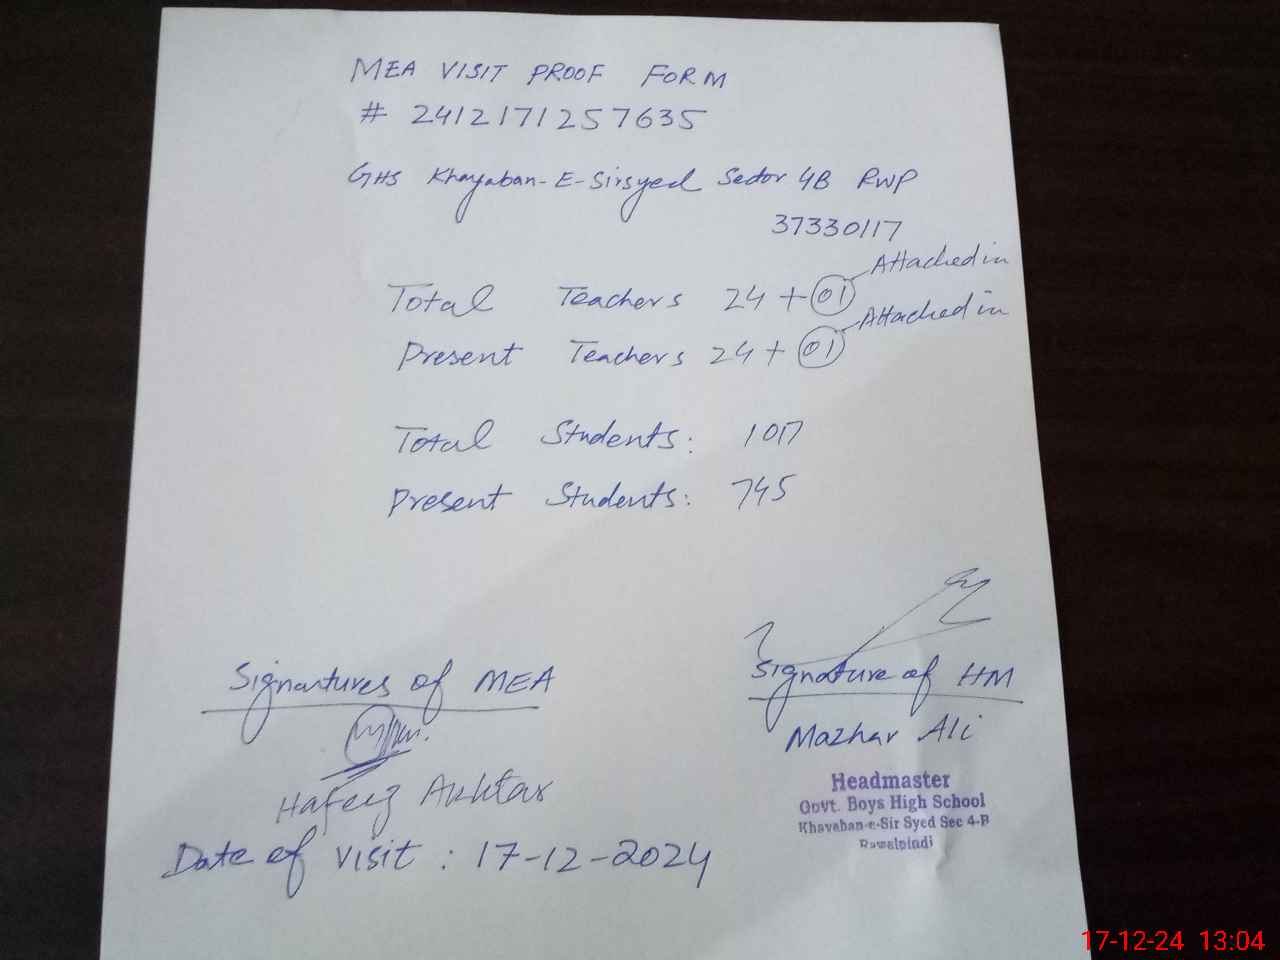 MEA VISIT PROOF FORM
# 2412171257635
GHS Khayaban-E-Sirsyed Sector 4B RWP
37330117
Total Teachers 24 + 01 Attached in
Present Teachers 24 + 01 Attached in
Total Students: 1017
Present Students: 745
Signatures of MEA
Signature of HM
Hafeez Akhtar
Mazhar Ali
Headmaster
Govt. Boys High School
Khayaban-e-Sir Syed Sec 4-B
Rawalpindi
Date of visit : 17-12-2024
17-12-24 13:04